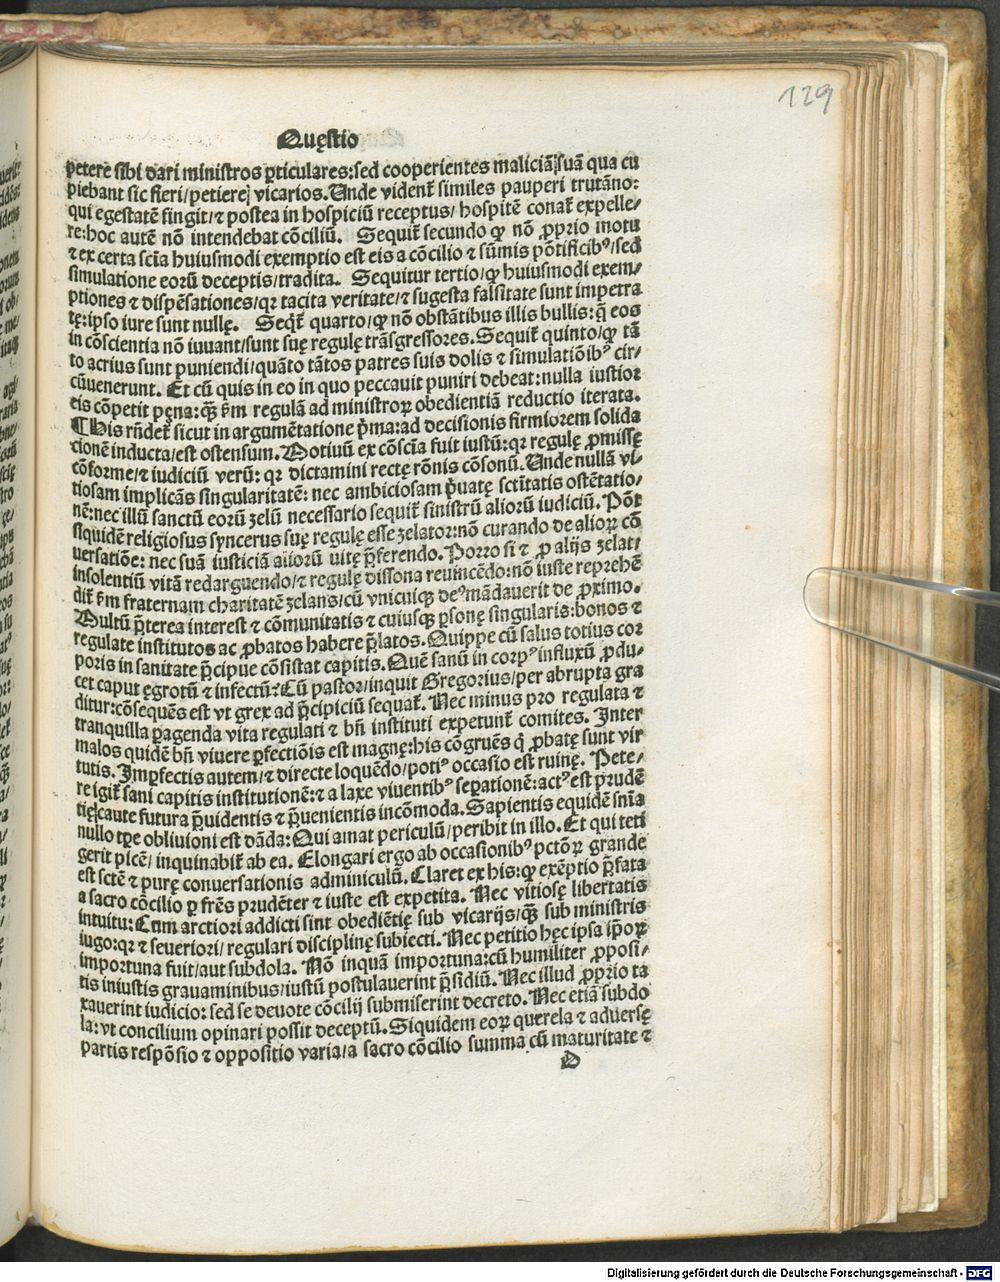 129
Quęstio
petere sibi dari ministros ꝑticulares: sed cooperientes maliciā suā qua cu
piebant sic fieri/petiere vicarios. Unde vident̃ similes pauperi trutāno:
qui egestatē fingit/⁊ postea in hospiciū receptus/ hospitē conat̃ expelle/
re: hoc autē nō intendebat cōciliū. Sequit̃ secundo ꝙ nō ꝓprio motu
⁊ ex certa scīa huiusmodi exemptio est eis a cōcilio ⁊ sūmis pōtificibꝰ/sed
simulatione eorū deceptis/tradita. Sequitur tertio/ꝙ huiusmodi exem/
ptiones ⁊ dispēsationes/qꝛ tacita veritate/⁊ sugesta falsitate sunt impetra
tę: ipso iure sunt nullę. Seqt̃ quarto/ꝙ nō obstātibus illis bullis: q̄ eos
in cōscientia nō iuuant/sunt suę regulę trāsgressores. Sequit̃ quinto/ꝙ tā
to acrius sunt puniendi/quāto tātos patres suis dolis ⁊ simulatiōibꝰ cir/
cūuenerunt. Et cū quis in eo in quo peccauit puniri debeat: nulla iustior
eis cōpetit pęna: qꝫ s̄m regulā ad ministroꝝ obedientiā reductio iterata.
¶His rñdet̃ sicut in argumētatione p̄ma: ad decisionis firmiorem solida
tionē inducta/est ostensum. Motiuū ex cōscīa fuit iustū: qꝛ regulę ꝓmissę
cōforme/⁊ iudiciū verū: qꝛ dictamini rectę rōnis cōsonū. Unde nullā vi/
tiosam implicās singularitatē: nec ambiciosam p̄uatę sctītatis ostētatio/
nē: nec illū sanctū eorū zelū necessario sequit̃ sinistrū aliorū iudiciū. Pōt
siquidē religiosus syncerus suę regulę esse zelator: nō curando de alioꝝ cō
uersatiōe: nec suā iusticiā aliorū vitę p̄ferendo. Porro si ⁊ ꝓ alijs zelat̃
insolentiū vitā redarguendo/⁊ regulę dissona reuincēdo: nō iuste reprehē
dit̃ s̄m fraternam charitatē zelans/cū vnicuiqꝫ deꝰ mādauerit de ꝓximo.
Multū p̄terea interest ⁊ cōmunitatis ⁊ cuiusqꝫ ꝑsonę singularis: bonos ⁊
regulate institutos ac ꝓbatos habere p̄latos. Quippe cū salus totius cor
poris in sanitate p̄cipue cōsistat capitis. Quē sanū in corpꝰ influxū ꝓdu/
cet caput ęgrotū ⁊ infectū? Cū pastor/inquit Gregorius/per abrupta gra
ditur: cōsequēs est vt grex ad p̄cipiciū sequat̃. Nec minus pro regulata ⁊
tranquilla ꝑagenda vita regulati ⁊ bñ instituti expetunt̃ comites. Inter
malos quidē bñ viuere ꝑfectiōis est magnę: his cōgruēs q̇ ꝓbatę sunt vir
tutis. Imꝑfectis autem/⁊ directe loquēdo/potiꝰ occasio est ruinę. Pete/
re igit̃ sani capitis institutionē: ⁊ a laxe viuentibꝰ seꝑationē: actꝰ est prudē
tię/caute futura p̄uidentis ⁊ p̄uenientis incōmoda. Sapientis equidē sñīa
nullo tꝑe obliuioni est dāda: Qui amat periculū/peribit in illo. Et qui teti
gerit picē/ inquinabit̃ ab ea. Elongari ergo ab occasionibꝰ pctōꝝ grande
est sctē ⁊ purę conuersationis adminiculū. Claret ex his: ꝙ exēptio p̄fata
a sacro cōcilio ꝑ fr̄es prudēter ⁊ iuste est expetita. Nec vitiosę libertatis
intuitu: Cum arctiori addicti sint obediētię sub vicarijs/qꝫ sub ministris
iugo: qꝛ ⁊ seueriori/ regulari disciplinę subiecti. Nec petitio hęc ipsa ip̄oꝝ
importuna fuit/aut subdola. Nō inquā importuna: cū humiliter ꝓposi/
tis iniustis grauaminibus/iustū postulauerint p̄sidiū. Nec illud ꝓprio ta
xauerint iudicio: sed se deuote cōcilij submiserint decreto. Nec etiā subdo
la: vt concilium opinari possit deceptū. Siquidem eoꝝ querela ⁊ aduersę
partis respōsio ⁊ oppositio varia/a sacro cōcilio summa cū maturitate ⁊
Digitalisierung gefördert durch die Deutsche Forschungsgemeinschaft - DFG